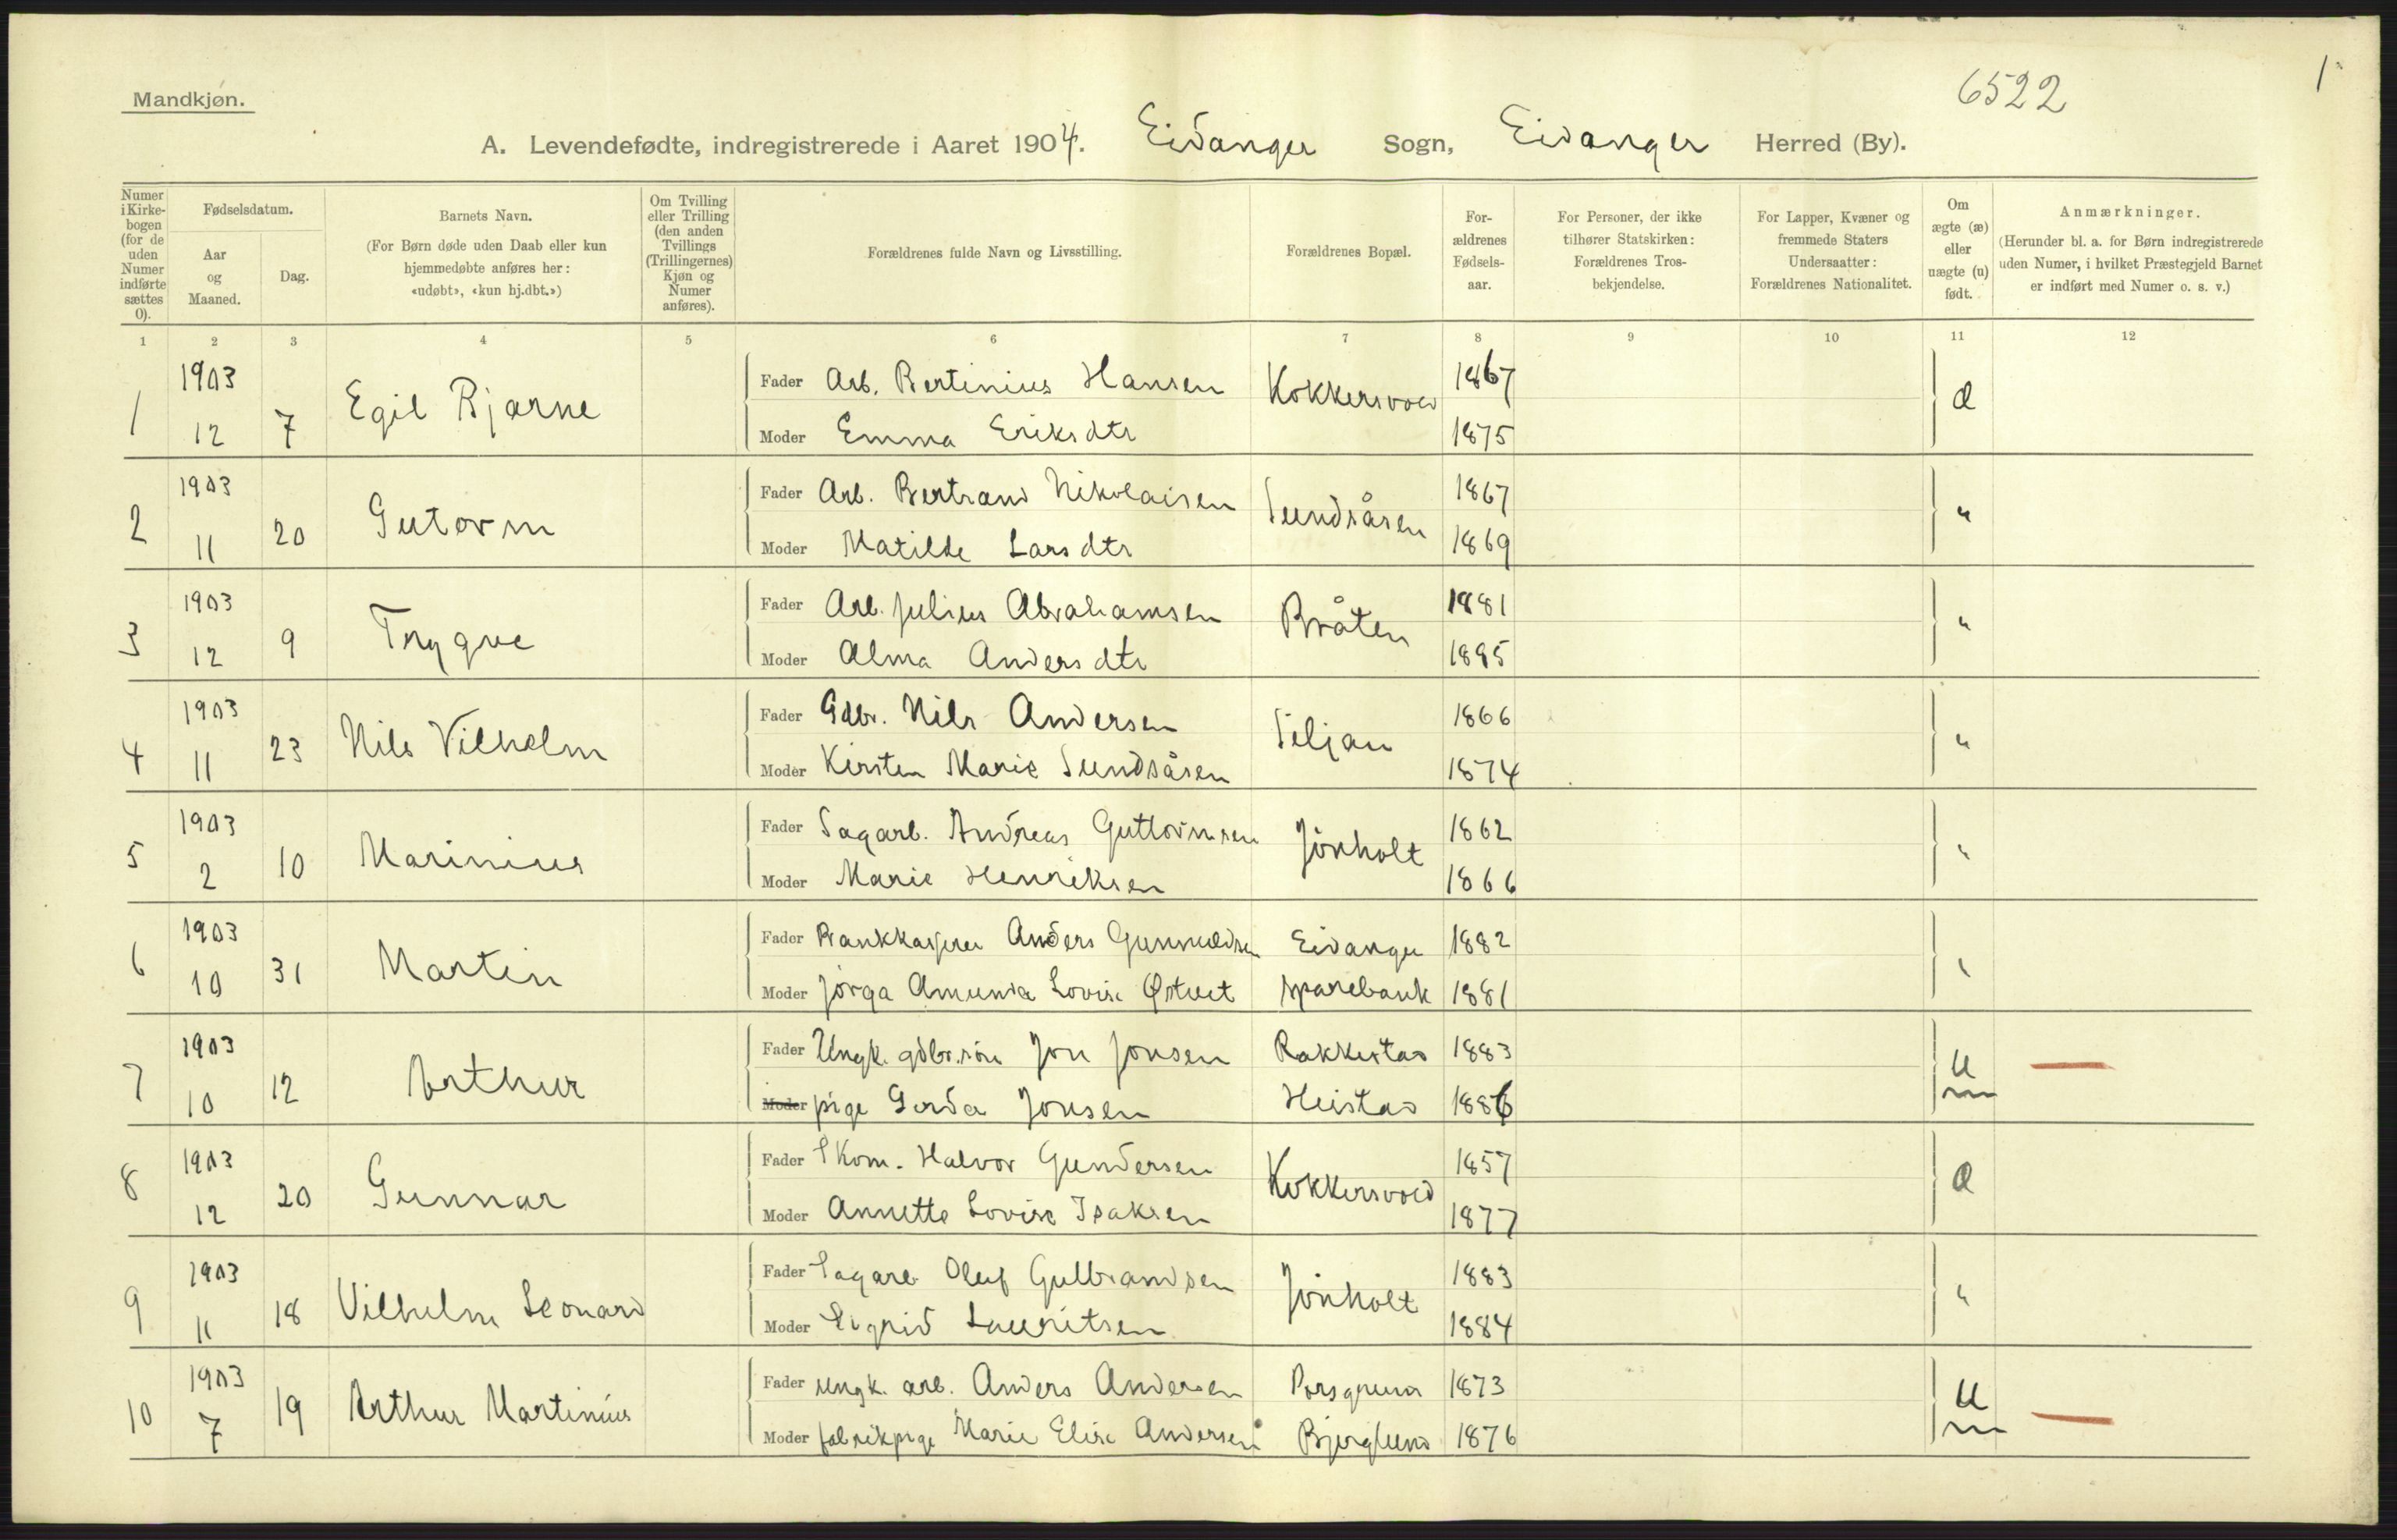 6522
1
Mandkjøn.
A. Levendefødte, indregistrerede i Aaret 1904. Eidanger Sogn, Eidanger Herred (By).
Numer i Kirkebogen (for de uden Numer indførte sættes 0).
Fødselsdatum.
Aar og Maaned.
Dag.
Barnets Navn.
(For Børn døde uden Daab eller kun hjemmedøbte anføres her: «udøbt», «kun hj.dbt.»)
Om Tvilling eller Trilling (den anden Tvillings (Trillingernes) Kjøn og Numer anføres).
Forældrenes fulde Navn og Livsstilling.
Forældrenes Bopæl.
Forældrenes Fødselsaar.
For Personer, der ikke tilhører Statskirken: Forældrenes Trosbekjendelse.
For Lapper, Kvæner og fremmede Staters Undersaatter: Forældrenes Nationalitet.
Om ægte (æ) eller uægte (u) født.
Anmærkninger.
(Herunder bl. a. for Børn indregistrerede uden Numer, i hvilket Præstegjeld Barnet er indført med Numer o. s. v.)
1 2 3 4 5 6 7 8 9 10 11 12
1 1903 12 7 Egil Bjarne Fader Arb. Bertinius Hansen Kokkersvold 1867 æ
Moder Emma Eriksdtr 1875
2 1903 11 20 Gutorm Fader Arb. Bertrand Nikolaisen Sundsåsen 1867 "
Moder Matilde Larsdtr 1869
3 1903 12 9 Trygve Fader Arb. Julius Abrahamsen Bråten 1881 "
Moder Alma Andersdtr 1885
4 1903 11 23 Nils Vilhelm Fader Gdbr. Nils Andersen Siljan 1866 "
Moder Kirsten Marie Sundsåsen 1874
5 1903 2 10 Marinius Fader Sagarb. Andreas Guttormsen Jönholt 1862 "
Moder Marie Henriksen 1866
6 1903 10 31 Martin Fader Bankkasserer Anders Gunnuldsen Eidanger 1882 "
Moder Jörga Amunda Lovise Østvet sparebank 1881
7 1903 10 12 Arthur Fader Ungk. gdbr.sön Jon Jonsen Rakkestad 1883 U
Moder pige Gerda Jonsen Heistad 1886
8 1903 12 20 Gunnar Fader Skom. Halvor Gundersen Kokkersvold 1857 æ
Moder Annette Lovise Isaksen 1877
9 1903 11 18 Vilhelm Leonard Fader Sagarb. Oluf Gulbrandsen Jönholt 1883 "
Moder Sigrid Lauritsen 1884
10 1903 7 19 Arthur Martinius Fader Ungk. arb. Anders Andersen Porsgrund 1873 U
Moder fabrikpige Marie Elise Andersen Bjerglund 1876